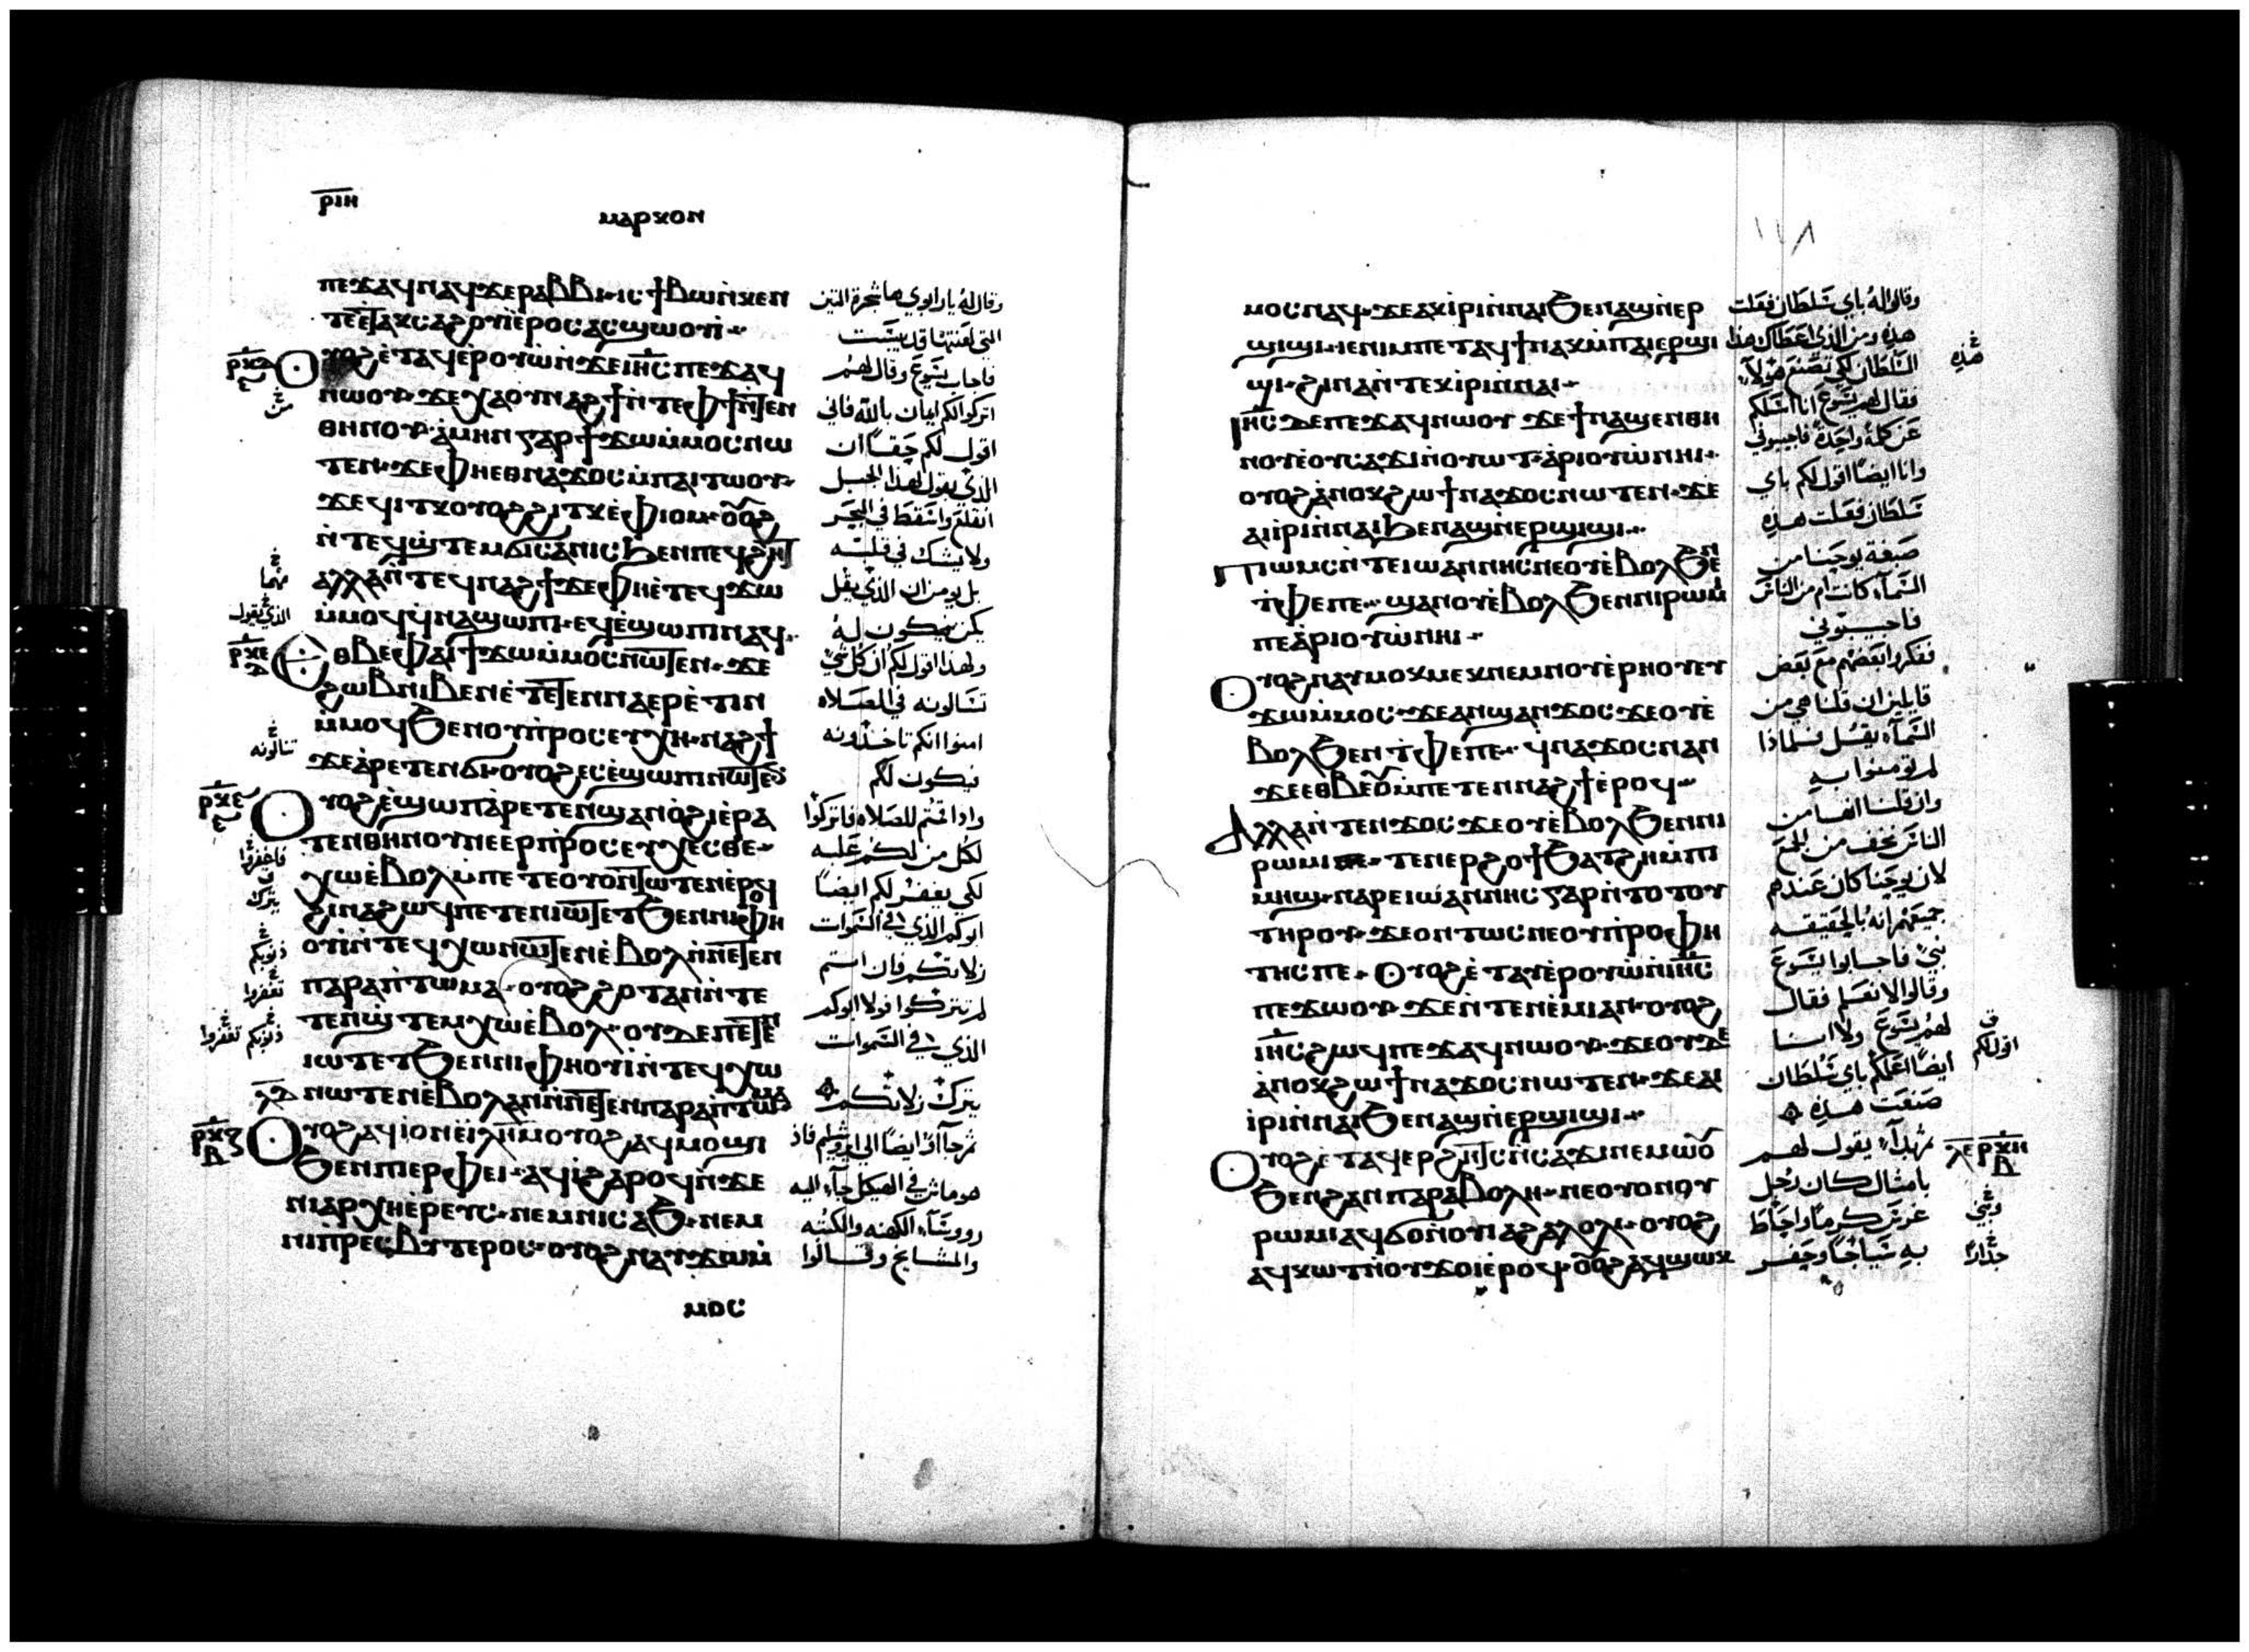 ⲣⲓⲏ
ⲙⲁⲣⲕⲟⲛ
ⲡⲉϫⲁϥ ⲛⲁϥ ϫⲉ ⲣⲁⲃⲃⲓ ⲓⲥ ϯⲃⲱ ⲛ̀ⲕⲉⲛ
ⲧⲉ ⲉⲧⲁⲕⲥⲁϩⲟⲩⲓ̀ ⲉ̀ⲣⲟⲥ ⲁⲥϣⲱⲟⲩⲓ̀
ⲟⲩⲟϩ ⲉ̀ⲧⲁϥⲉ̀ⲣⲟⲩⲱ̀ ⲛ̀ϫⲉ ⲓⲏⲥ ⲡⲉϫⲁϥ
ⲛⲱⲟⲩ ϫⲉ ⲭⲁ ⲟⲩⲛⲁϩϯ ⲛ̀ⲧⲉ ⲫϯ ϧⲉⲛ
ⲑⲏⲛⲟⲩ ⲁ̀ⲙⲏⲛ ⲅⲁⲣ ϯϫⲱ ⲙ̀ⲙⲟⲥ ⲛⲱ
ⲧⲉⲛ ϫⲉ ⲫⲏ ⲉⲑⲛⲁϫⲟⲥ ⲙ̀ⲡⲁⲓⲧⲱⲟⲩ
ϫⲉ ϥⲓⲧⲕ ⲟⲩⲟϩ ϩⲓⲧⲕ ⲉ̀ⲫⲓⲟⲙ ⲟⲩⲟϩ
ⲛ̀ⲧⲉϥϣ̀ⲧⲉⲙϭⲓⲥⲁⲛⲓⲥ ϧⲉⲛ ⲡⲉϥϩⲏⲧ
ⲁⲗⲗⲁ ⲛ̀ⲧⲉϥⲛⲁϩϯ ϫⲉ ⲫⲏ ⲉ̀ⲧⲉϥϫⲱ
ⲙ̀ⲙⲟϥ ϥ̀ⲛⲁϣⲱⲡⲓ ⲉϥⲉ̀ϣⲱⲡⲓ ⲛⲁϥ
ⲉⲑⲃⲉ ⲫⲁⲓ ϯϫⲱ ⲙ̀ⲙⲟⲥ ⲛⲱⲧⲉⲛ ϫⲉ
ϩⲱⲃ ⲛⲓⲃⲉⲛ ⲉ̀ⲧⲉⲧⲉⲛⲛⲁⲉⲣⲉ̀ⲧⲓⲛ
ⲙ̀ⲙⲟϥ ϧⲉⲛ ⲟⲩⲡ̀ⲣⲟⲥⲉⲩⲭⲏ ⲛⲁϩϯ
ϫⲉ ⲁ̀ⲣⲉⲧⲉⲛϭⲓ ⲟⲩⲟϩ ⲉⲥⲉ̀ϣⲱⲡⲓ ⲛⲱⲧⲉⲛ
ⲟⲩⲟϩ ⲉ̀ϣⲱⲡ ⲁⲣⲉⲧⲉⲛϣⲁⲛⲟ̀ϩⲓ ⲉ̀ⲣⲁ
ⲧⲉⲛ ⲑⲏⲛⲟⲩ ⲉ̀ⲉⲣⲡ̀ⲣⲟⲥⲉⲩⲭⲉⲥⲑⲉ
ⲭⲱ ⲉ̀ⲃⲟⲗ ⲙ̀ⲡⲉⲧⲉⲟⲩⲟⲛⲧⲱⲧⲉⲛ ⲉ̀ⲣⲟϥ
ϩⲓⲛⲁ ϩⲱϥ ⲡⲉⲧⲉⲛⲓⲱⲧ ⲉⲧϧⲉⲛ ⲛⲓⲫⲏ
ⲟⲩⲓ̀ ⲛ̀ⲧⲉϥⲭⲱ ⲛⲱⲧⲉⲛ ⲉ̀ⲃⲟⲗ ⲛ̀ⲛⲉⲧⲉⲛ
ⲡⲁⲣⲁⲡⲧⲱⲙⲁ ⲟⲩⲟϩ ϩⲟⲧⲁⲛ ⲛ̀ⲧⲉ
ⲧⲉⲛϣ̀ⲧⲉⲙⲭⲱ ⲉ̀ⲃⲟⲗ ⲟⲩⲇⲉ ⲡⲉⲧⲉⲛ
ⲓⲱⲧ ⲉⲧϧⲉⲛ ⲛⲓⲫⲏⲟⲩⲓ̀ ⲛ̀ⲧⲉϥⲭⲱ
ⲛⲱⲧⲉⲛ ⲉ̀ⲃⲟⲗ ⲁⲛ ⲛ̀ⲛⲉⲧⲉⲛⲡⲁⲣⲁⲡⲧⲱⲙⲁ
ⲟⲩⲟϩ ⲁϥⲓ̀ ⲟⲛ ⲉ̀ⲓⲗⲏⲙ ⲟⲩⲟϩ ⲁϥⲙⲟϣⲓ
ϧⲉⲛ ⲡⲓⲉⲣⲫⲉⲓ ⲁⲩⲓ̀ ϩⲁⲣⲟϥ ⲛ̀ϫⲉ
ⲛⲓⲁⲣⲭⲏⲉ̀ⲣⲉⲩⲥ ⲛⲉⲙ ⲛⲓⲥⲁϧ ⲛⲉⲙ
ⲛⲓⲡ̀ⲣⲉⲥⲃⲩⲧⲉⲣⲟⲥ ⲟⲩⲟϩ ⲛⲁⲩϫⲱ ⲙ̀
ⲙⲟⲥ
وقال له يا رابوي ها شجرة التين
التي لعنتها قد يبست
فاجاب يسوع وقال لهم
اتركوا لكم ايمان بالله فاني
اقول لكم حقًا ان
الذي يقول لهذا الجبل
انقلع واسقط في البحر
ولا يشك في قلبه
بل يومن ان الذي يقل
يكن فيكون له
ولهذا اقول لكم ان كل شي
تسالونه في الصلاه
امنوا انكم تاخذونه
فيكون لكم
واذا قمتم للصلاه فاتركوا
لكل من لكم عليه
لكي يغفر لكم ايضًا
ابوكم الذي في السموات
زلاتكم فان انتم
لم تتركوا فولا ابوكم
الذي في السموات
يترك زلاتكم
ثم جاآوا ايضًا الى يروشليم فاذ
هو ماشٍ في الهيكل جآء اليه
رووسآء الكهنه والكتبه
والمشايخ وقالوا
١١٨
ⲙⲟⲥ ⲛⲁϥ ϫⲉ ⲁⲕⲓ̀ⲣⲓ ⲛ̀ⲛⲁⲓ ϧⲉⲛ ⲁϣ ⲛ̀ⲉⲣ
ϣⲓϣⲓ ⲓⲉ ⲛⲓⲙ ⲡⲉⲧⲁϥϯ ⲛⲁⲕ ⲙ̀ⲡⲁⲓⲉⲣϣⲓ
ϣⲓ ϩⲓⲛⲁ ⲛ̀ⲧⲉⲕⲓ̀ⲣⲓ ⲛ̀ⲛⲁⲓ
ⲓⲏⲥ ⲇⲉ ⲡⲉϫⲁϥ ⲛⲱⲟⲩ ϫⲉ ϯⲛⲁϣⲉⲛ ⲑⲏ
ⲛⲟⲩ ⲉ̀ⲟⲩⲥⲁϫⲓ ⲛ̀ⲟⲩⲱⲧ ⲁ̀ⲣⲓⲟⲩⲱ̀ ⲛⲏⲓ
ⲟⲩⲟϩ ⲁ̀ⲛⲟⲕ ϩⲱ ϯⲛⲁϫⲟⲥ ⲛⲱⲧⲉⲛ ϫⲉ
ⲁⲓⲓ̀ⲣⲓ ⲛ̀ⲛⲁⲓ ϧⲉⲛ ⲁϣ ⲛ̀ⲉⲣϣⲓϣⲓ
ⲡⲓⲱⲙⲥ ⲛ̀ⲧⲉ ⲓⲱⲁⲛⲛⲏⲥ ⲛⲉ ⲟⲩⲉ̀ⲃⲟⲗ ϧⲉⲛ
ⲧ̀ⲫⲉ ⲡⲉ ϣⲁⲛ ⲟⲩⲉ̀ⲃⲟⲗ ϧⲉⲛ ⲛⲓⲣⲱⲙⲓ
ⲡⲉ ⲁ̀ⲣⲓⲟⲩⲱ̀ ⲛⲏⲓ
ⲟⲩⲟϩ ⲛⲁⲩⲙⲟⲕⲙⲉⲕ ⲛⲉⲙ ⲛⲟⲩⲉ̀ⲣⲏⲟⲩ ⲉⲩ
ϫⲱ ⲙ̀ⲙⲟⲥ ϫⲉ ⲁⲛϣⲁⲛϫⲟⲥ ϫⲉ ⲟⲩⲉ̀
ⲃⲟⲗ ϧⲉⲛ ⲧ̀ⲫⲉ ⲡⲉ ϥ̀ⲛⲁϫⲟⲥ ⲛⲁⲛ
ϫⲉ ⲉⲑⲃⲉⲟⲩ ⲙ̀ⲡⲉⲧⲉⲛⲛⲁϩϯ ⲉ̀ⲣⲟϥ
ⲁⲗⲗⲁ ⲛ̀ⲧⲉⲛϫⲟⲥ ϫⲉ ⲟⲩⲉ̀ⲃⲟⲗ ϧⲉⲛ ⲛⲓ
ⲣⲱⲙⲓ ⲧⲉⲛⲉⲣϩⲟϯ ϧⲁⲧϩⲏ ⲙ̀ⲡⲓ
ⲙⲏϣ ⲛⲁⲣⲉ ⲓⲱⲁⲛⲛⲏⲥ ⲅⲁⲣ ⲛ̀ⲧⲟⲧⲟⲩ
ⲧⲏⲣⲟⲩ ϫⲉ ⲟⲛⲧⲱⲥ ⲛⲉ ⲟⲩⲡ̀ⲣⲟⲫⲏ
ⲧⲏⲥ ⲡⲉ ⲟⲩⲟϩ ⲉ̀ⲧⲁⲩⲉ̀ⲣⲟⲩⲱ̀ ⲛ̀ⲓⲏⲥ
ⲡⲉϫⲱⲟⲩ ϫⲉ ⲛ̀ⲧⲉⲛⲉ̀ⲙⲓ ⲁⲛ ⲟⲩⲟϩ
ⲓⲏⲥ ϩⲱϥ ⲡⲉϫⲁϥ ⲛⲱⲟⲩ ϫⲉ ⲟⲩⲇⲉ
ⲁ̀ⲛⲟⲕ ϩⲱ ϯⲛⲁϫⲟⲥ ⲛⲱⲧⲉⲛ ϫⲉ ⲁⲓ
ⲓⲣⲓ ⲛ̀ⲛⲁⲓ ϧⲉⲛ ⲁϣ ⲛ̀ⲉⲣϣⲓϣⲓ
ⲟⲩⲟϩ ⲉ̀ⲧⲁϥⲉⲣϩⲏⲧⲥ ⲛ̀ⲥⲁϫⲓ ⲛⲉⲙⲱⲟⲩ
ϧⲉⲛ ϩⲁⲛⲡⲁⲣⲁⲃⲟⲗⲏ ⲛⲉ ⲟⲩⲟⲛ ⲟⲩ
ⲣⲱⲙⲓ ⲁϥϭⲟ ⲛ̀ⲟⲩⲓⲁϩⲁⲗⲟⲗⲓ ⲟⲩⲟϩ
ⲁϥⲕⲱϯ ⲛ̀ⲟⲩϫⲟⲓ ⲉ̀ⲣⲟϥ ⲟⲩⲟϩ ⲁϥϣⲱⲕ
وقالوا له باي سلطان فعلت
هذه ومن الذي اعطاك هذا
السلطان لكي تصنع هولآء
فقال لهم يسوع انا اسلكم
عن كلمة واحدة فاجيبوني
وانا ايضًا اقول لكم باي
سلطان فعلت هذه
صبغة يوحنا من
السمآء كانت ام من الناس
فاجيبوني
ففكروا بعضهم مع بعض
قايلين ان قلنا هي من
السمآء يقل فلماذا
لم تومنوا به
وان قلنا انها من
الناس نخف من الجمع
لان يوحنا كان عندهم
جميعهم انه بالحقيقه
نبي فاجابوا يسوع
وقالوا لا نعلم فقال
لهم يسوع ولا انا
ايضًا اعلمكم باي سلطان
صنعت هذه
ثم بدآء يقول لهم
بامثال كان رجل
غرس كرمًا واحاط
به سياجًا وحفر